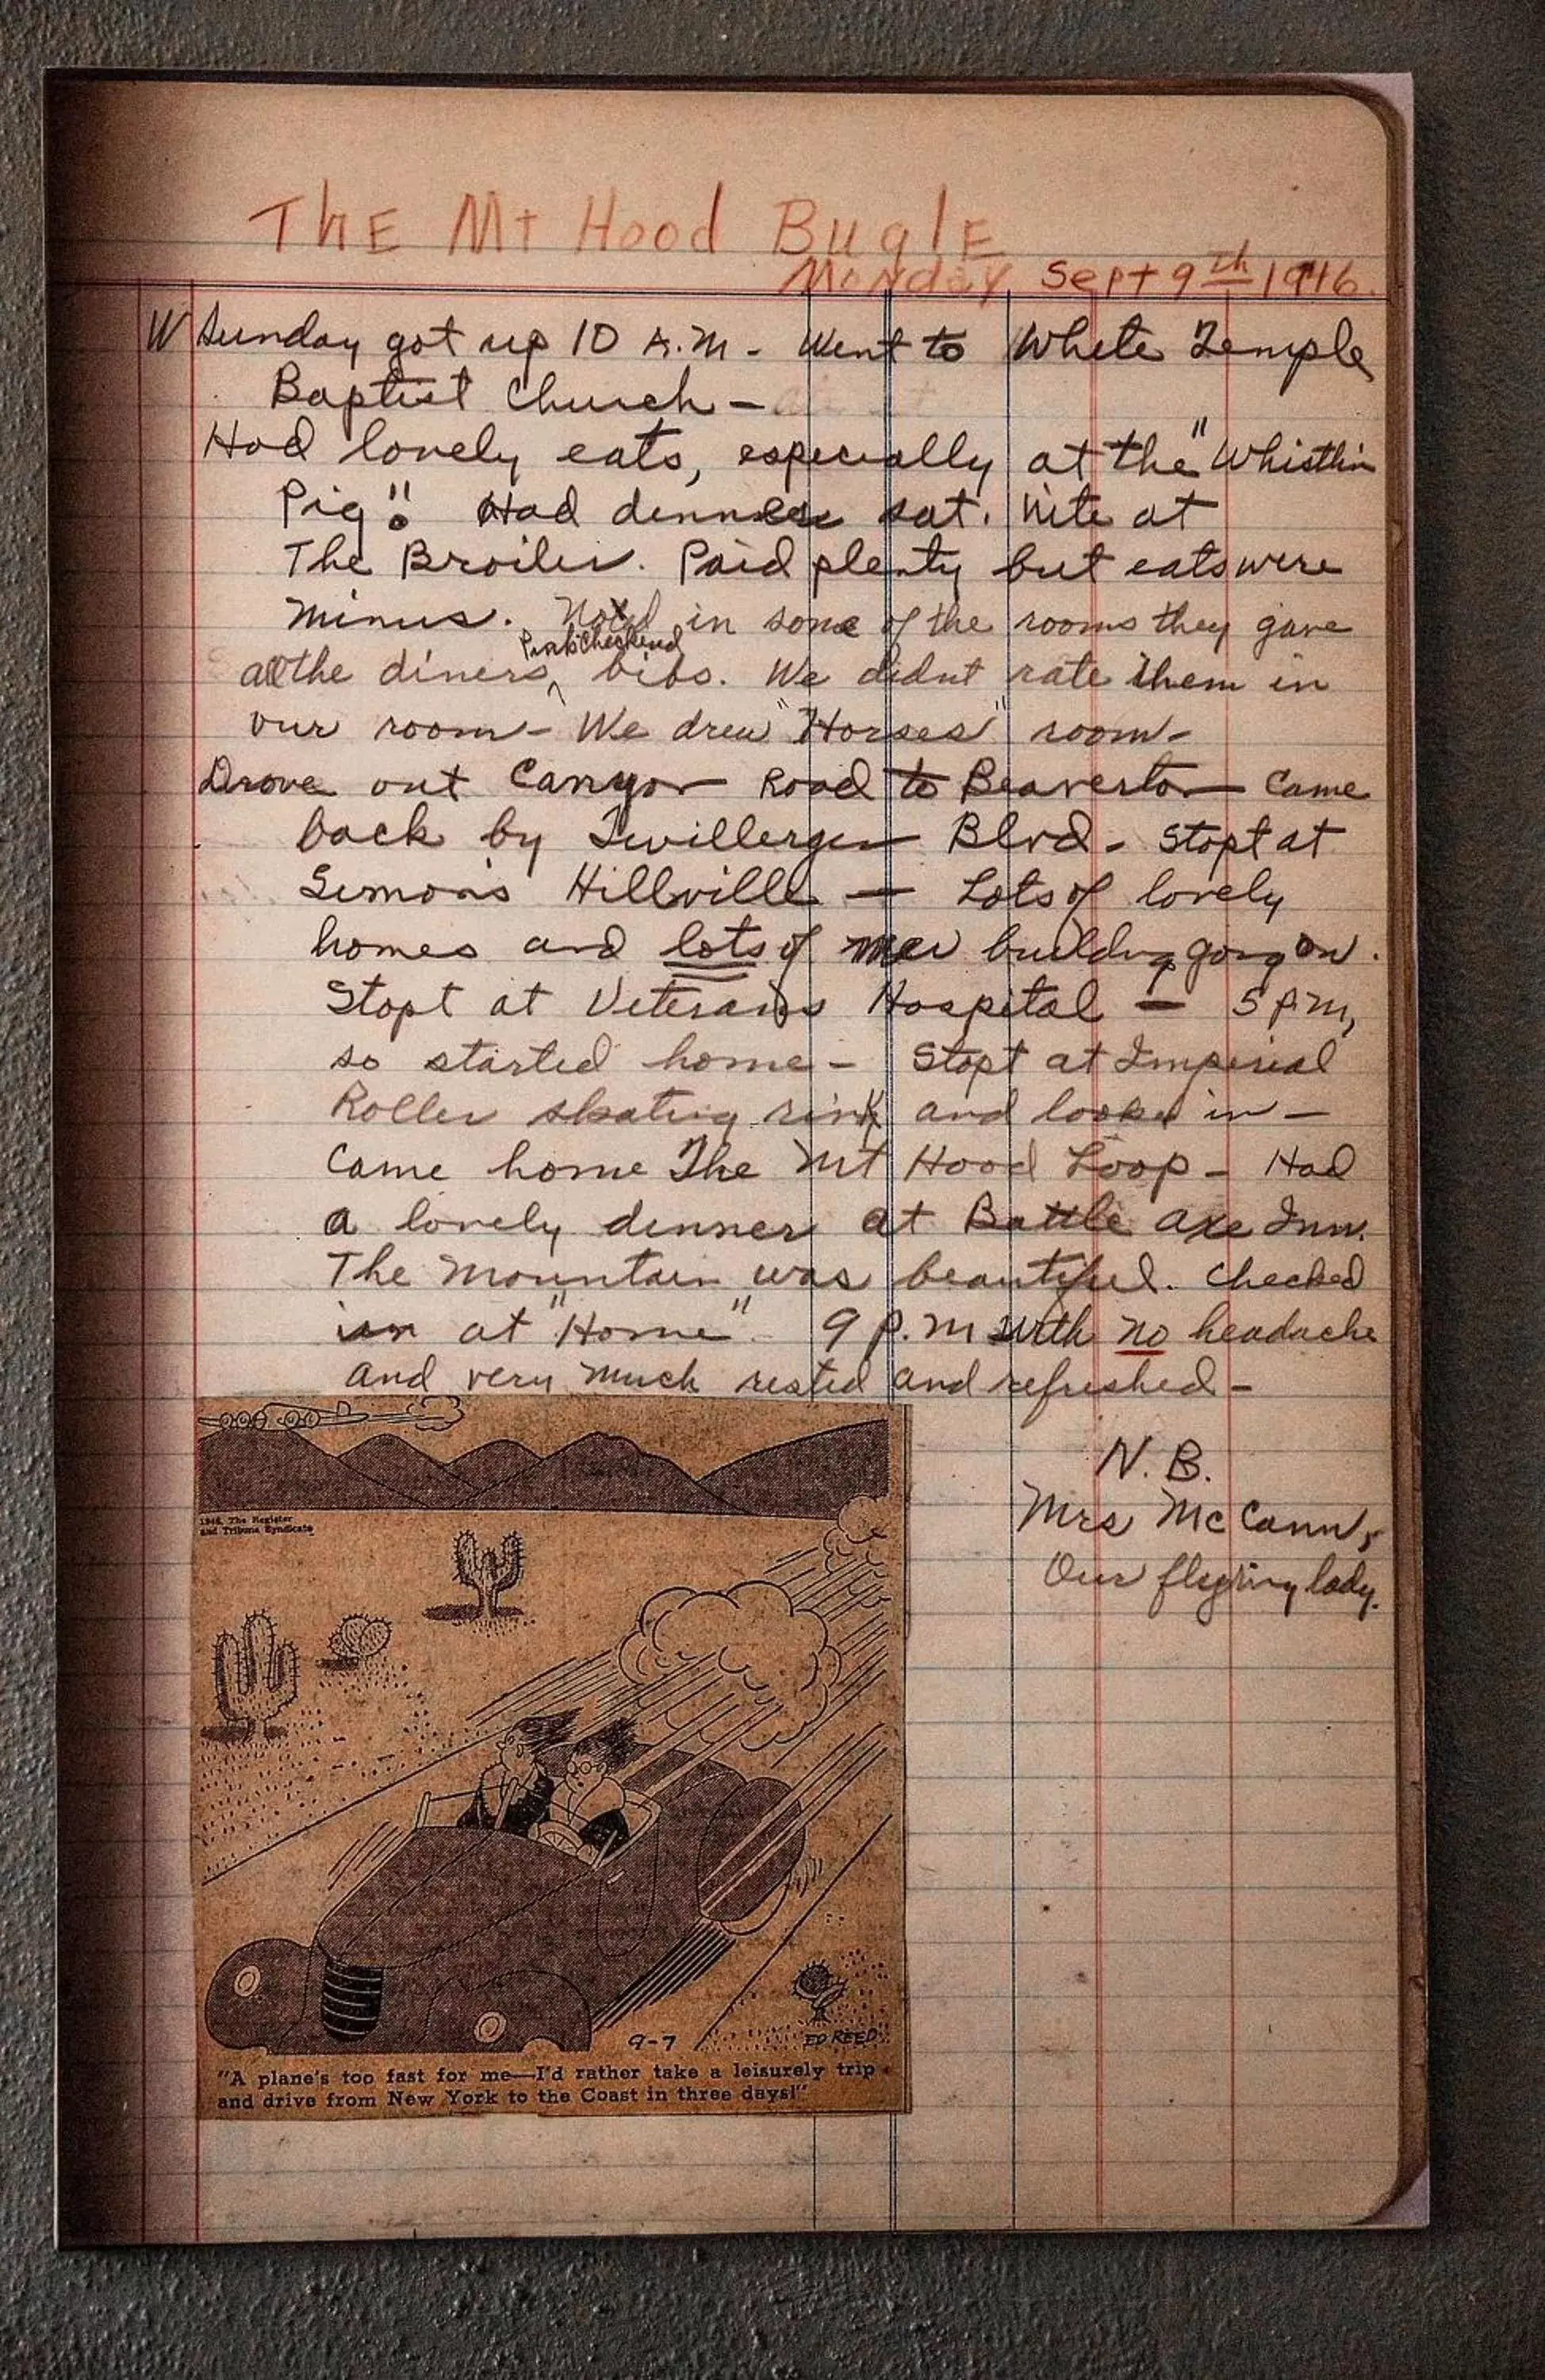 The Mt Hood Bugle
Monday Sept 9th 1946.
W Sunday got up 10 A.M. - Went to White Temple
Baptist Church -
Had lovely eats, especially at the "Whistlin
Pig". Had dinner sat. nite at
The Broiler. Paid plenty but eats were
minus. in some of the rooms they gave
Pink Checkerd
all the diners ^ bibs. We didnt rate them in
our room - We drew "Horses" room -
Drove out Canyon Road to Beaverton - Came
back by Twillerger Blvd - Stopt at
Simon's Hillville - Lots of lovely
homes and lots of new building going on.
Stopt at Veterans Hospital - 5 P.M,
so started home - Stopt at Imperial
Roller skating rink and looked in -
Came home The Mt Hood Loop - Had
a lovely dinner at Battle Axe Inn.
The Mountain was beautiful. Checked
in at "Home". 9 P.M with no headache
and very much rested and refreshed -
N. B.
Mrs McCann,
Our flying lady.
1946, The Register
and Tribune Syndicate
9-7
ED REED
"A plane's too fast for me—I'd rather take a leisurely trip
and drive from New York to the Coast in three days!"